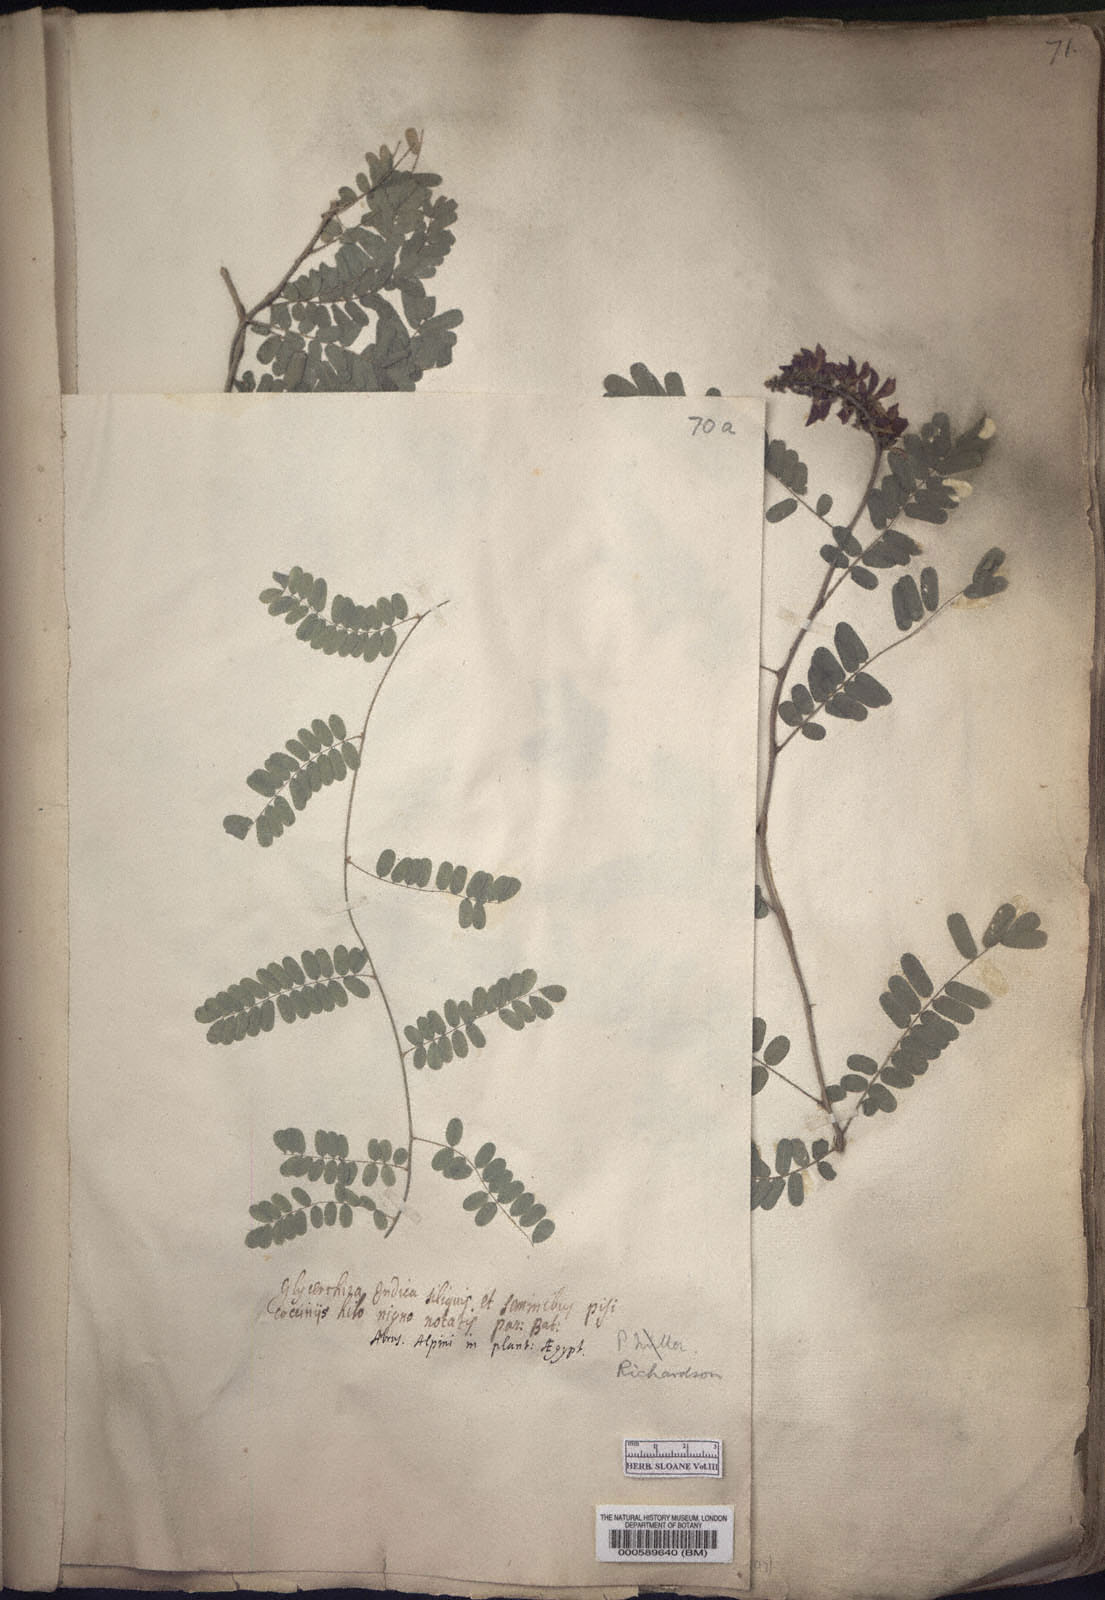 71.
70a
Glycerrhiza Indica siliquis et seminibus pisi
coccinijs hilo nigro notatis par: Bat:
Abrus. Alpini in plant: Ægypt.
P Miller.
Richardson
mm 1 2 3
HERB. SLOANE Vol.III
THE NATURAL HISTORY MUSEUM, LONDON
DEPARTMENT OF BOTANY
000589640 (BM)